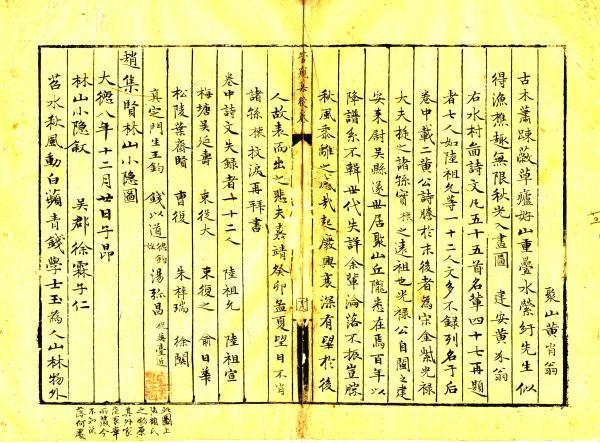 聚山黄肖翁
古木蕭踈蔽草廬好山重疊水縈紆先生似
得漁樵趣無限秋光入畫圖　建安黄㳟翁
右水村畵詩文凡五十五首名軰四十七再題
者七人如陸祖允等一十二人文多不録列名于后
卷中載二黄公詩牋於末後者為宋金紫光禄
大夫挺之諸孫實之遠祖也光禄公自閩之建
安来尉吴縣遂世居聚山丘隴悉在焉百年以
降譜系不輯世代失詳余軰淪落不振豈勝
秋風黍離之感哉起廢興衰深有望於後
人故表而出之悲夫嘉靖癸卯孟夏望日不肖
諸孫標抆淚再拜書
卷中詩文失録者一十二人
陸祖允　陸祖宣
梅塘吴延壽　束從大　束復之　俞日華
松陵葉齋賢　曹復　朱梓瑞　徐關
真定門生王鈞　錢以道　湯弥昌
趙集賢林山小隐圖
大德八年十二月廿日子昻
林山小隐叙　吴郡徐霖子仁
苕水秋風動白蘋青錢學士玉為人山林物外